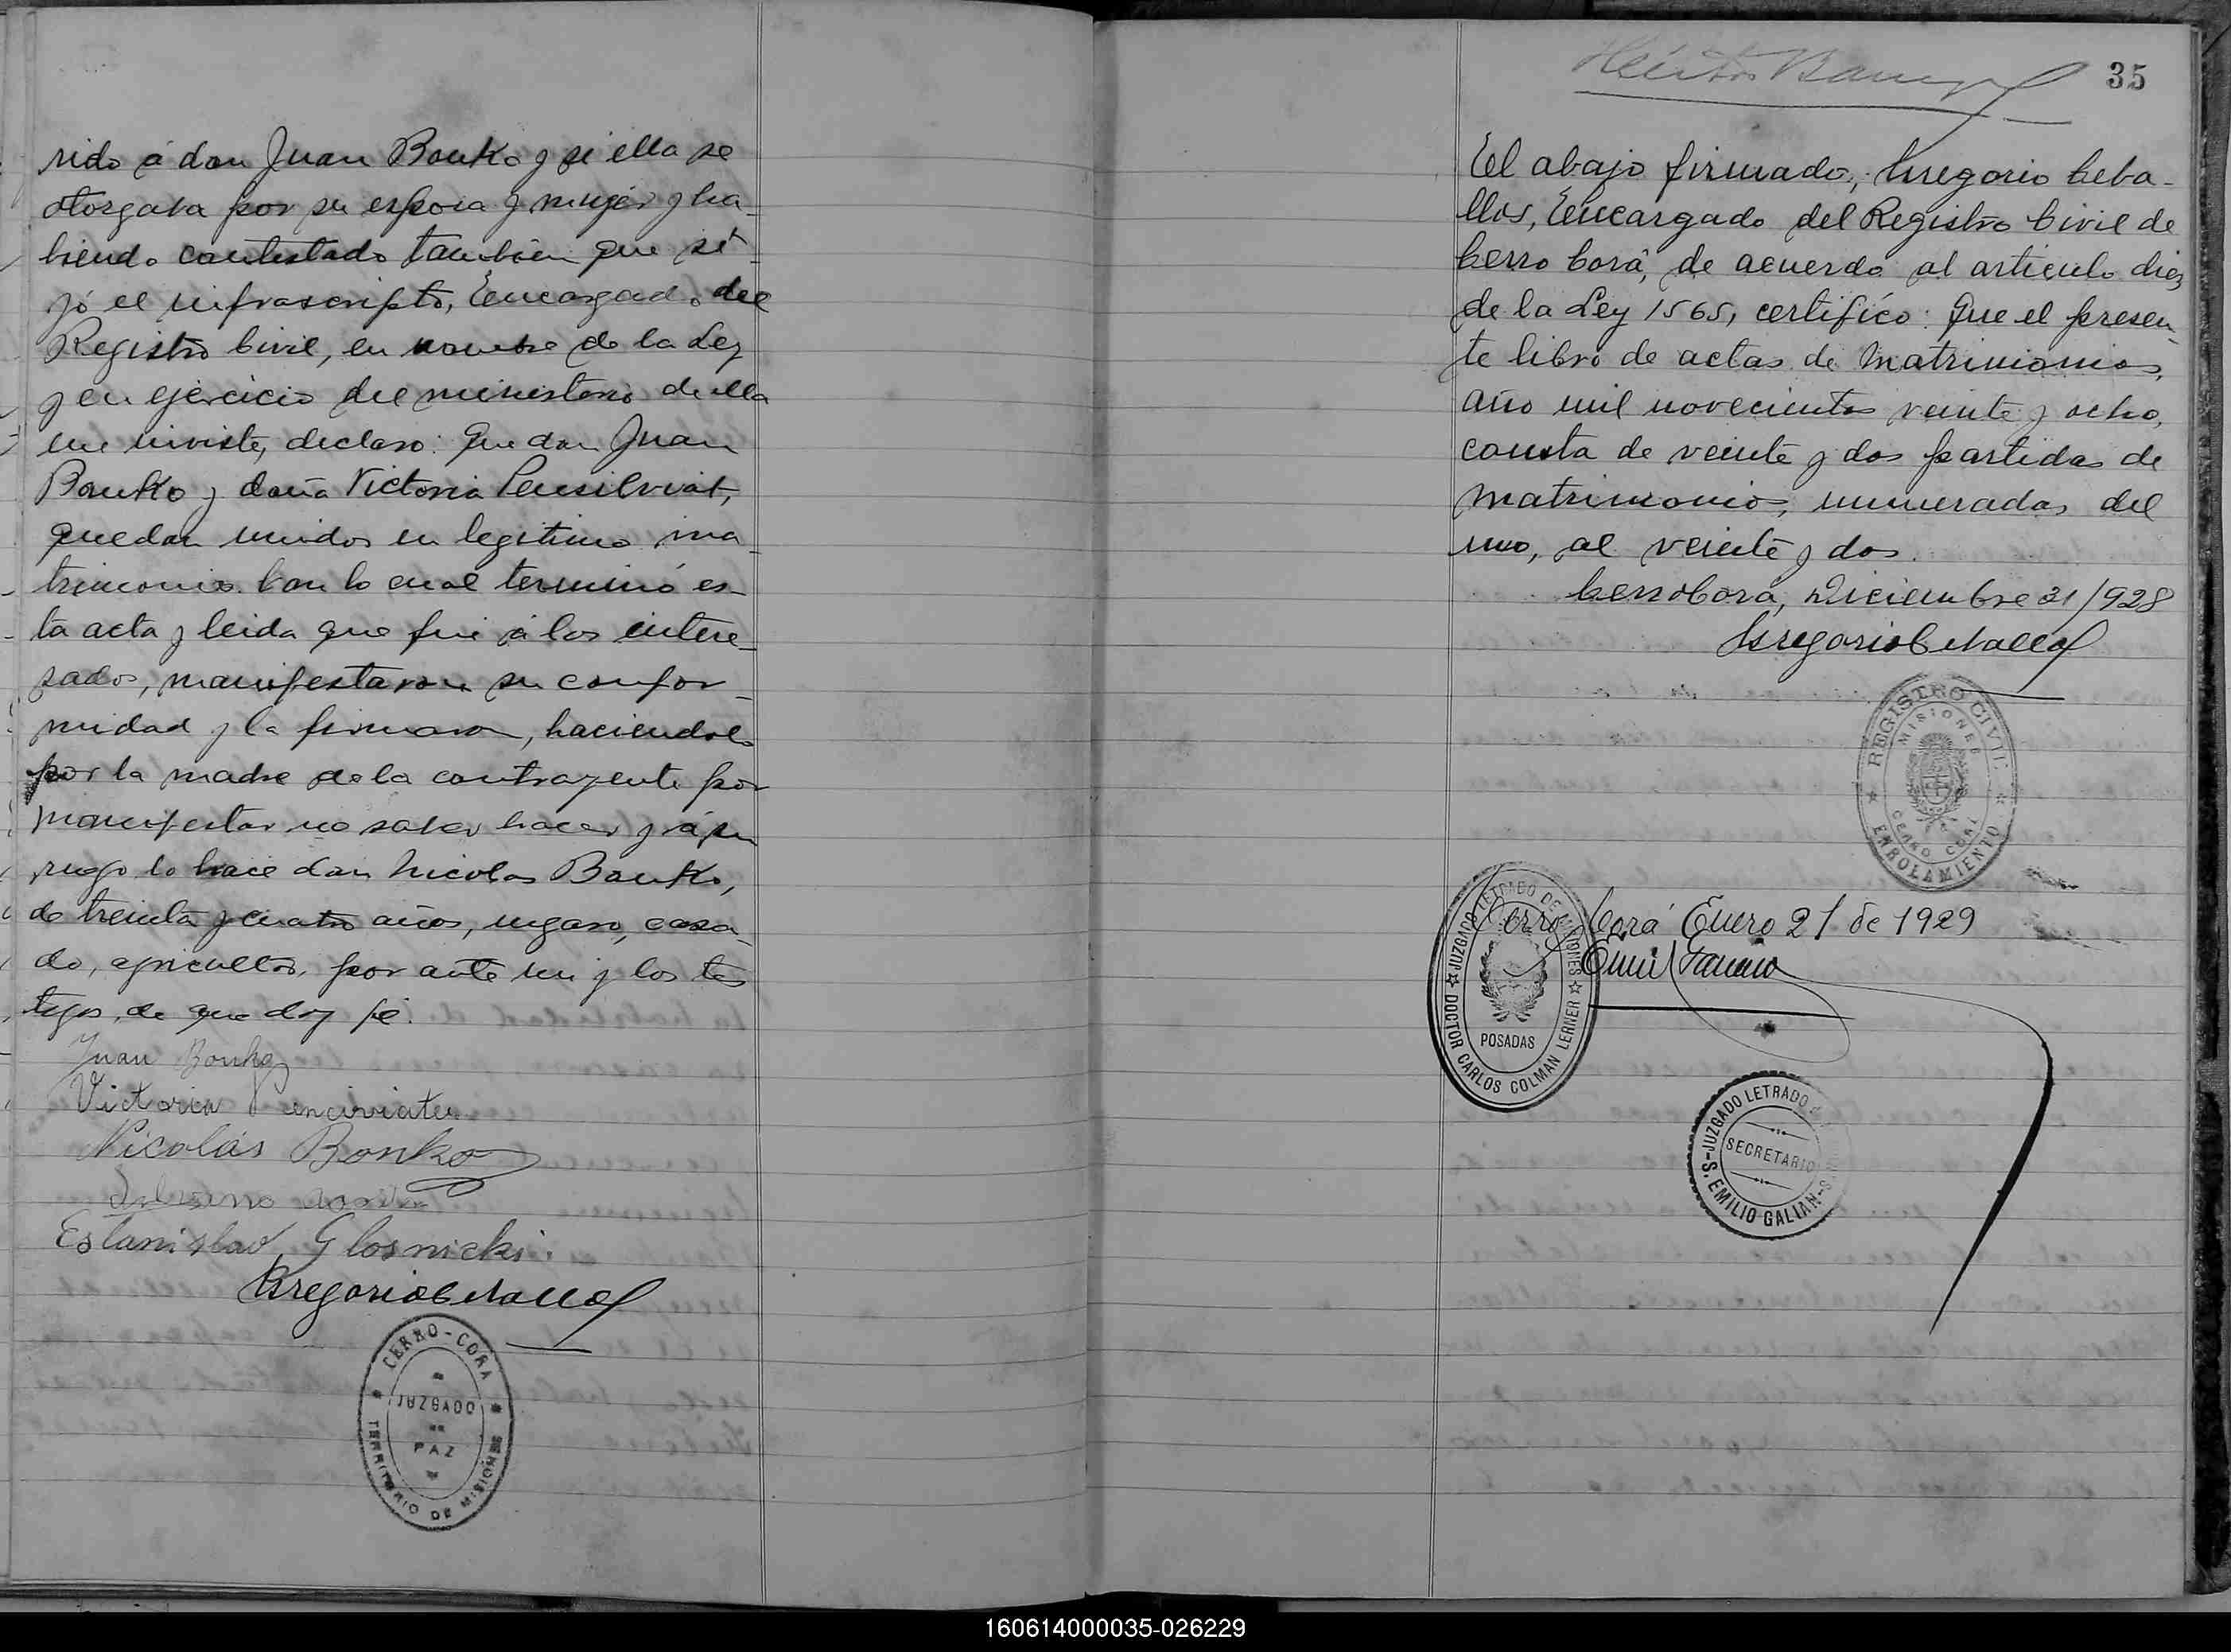 rido á don Juan Bonko y si ella se
otorgaba por su esposa y mujer y ha-
biendo contestado tambien que sí-
yó el infrascripto, Encargado del
Registro Civil, en nombre de la Ley
y en ejercicio del ministerio de ella
me inviste, declaro: Que don Juan
Bonko y doña Victoria Pensilviat,
quedan unidos en legitimo ma-
trimonio. Con lo cual terminó es-
ta acta y leida que fué á los intere-
sados, manifestaron su confor-
midad y la firmaron, haciendolo
por la madre de la contrayente por
manifestar no saber hacer y á su
ruego lo hace don Nicolas Bonko,
de treinta y cuatro años, casa-
do, agricultor, por ante mi y los tes
tigos, de que doy fé.
Juan Bonko
Victoria
Nicolás Bonko
Estanislao Glosnicki
Gregorio Ceballos
CERRO-CORA
JUZGADO
DE
PAZ
TERRITORIO DE MISIONES
35
El abajo firmado, Gregorio Ceba-
llos, Encargado del Registro Civil de
Cerro Corá, de acuerdo al articulo diez
de la Ley 1565, certifíco: Que el presen-
te libro de actas de Matrimonios,
año mil novecientos veinte y ocho,
consta de veinte y dos partidas de
matrimonios, numeradas del
uno, al veinte y dos.
Cerro Corá, Diciembre 31/928
Gregorio Ceballos
REGISTRO CIVIL
MISIONES
CERRO CORÁ
ENROLAMIENTO
Cerro Corá Enero 21 de 1929
JUZGADO LETRADO DE MISIONES
POSADAS
DOCTOR CARLOS COLMAN LERNER
JUZGADO LETRADO
SECRETARIO
S. EMILIO GALIAN
160614000035-026229